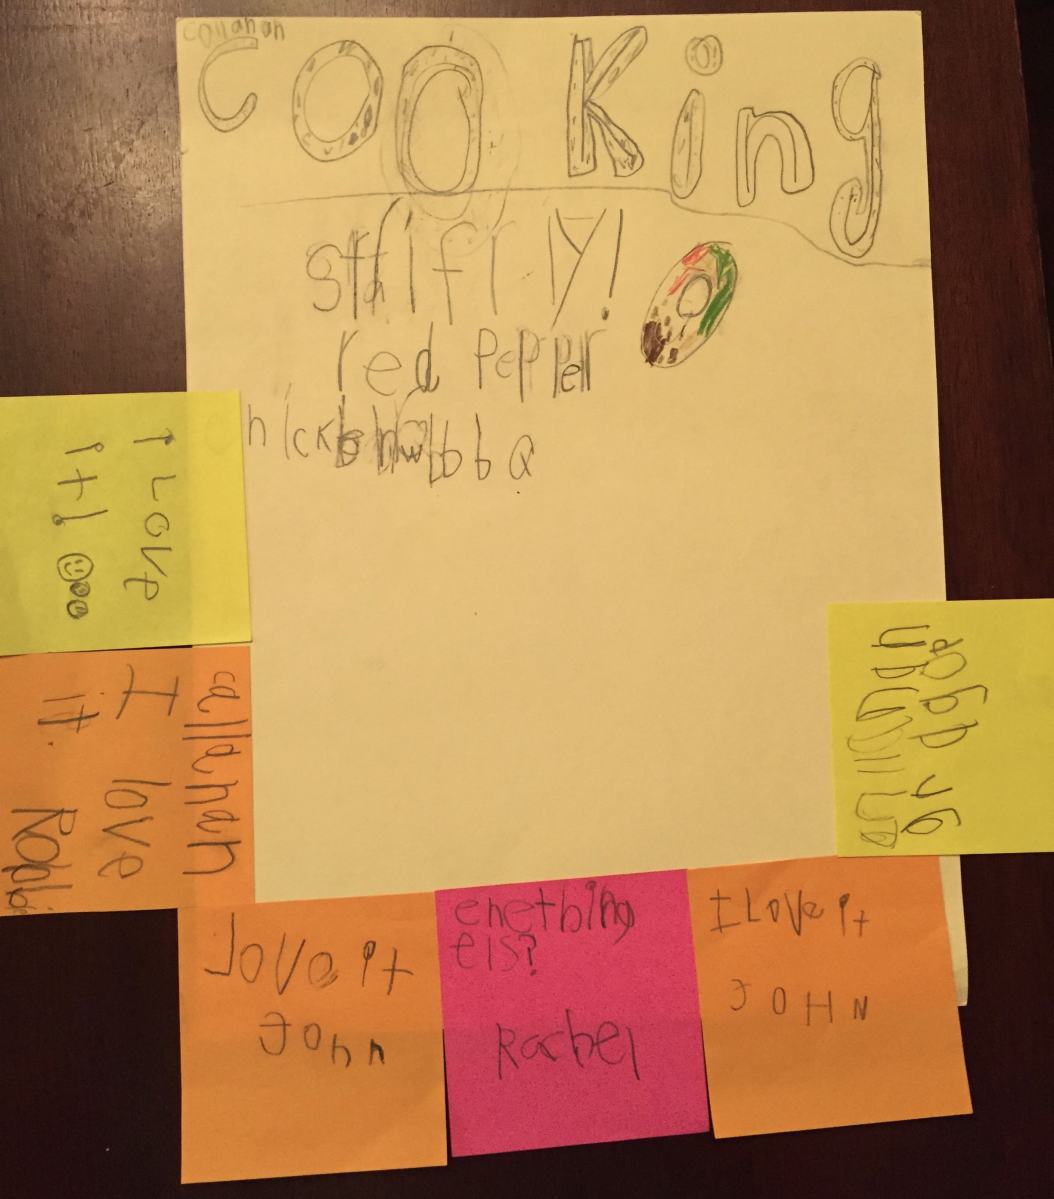 callahan
cooking
stirfry!
red pepper
bbQ
I Love
it!
callahan
I love
it.
Love it
John
enething
els?
Rachel
I Love it
JOHN